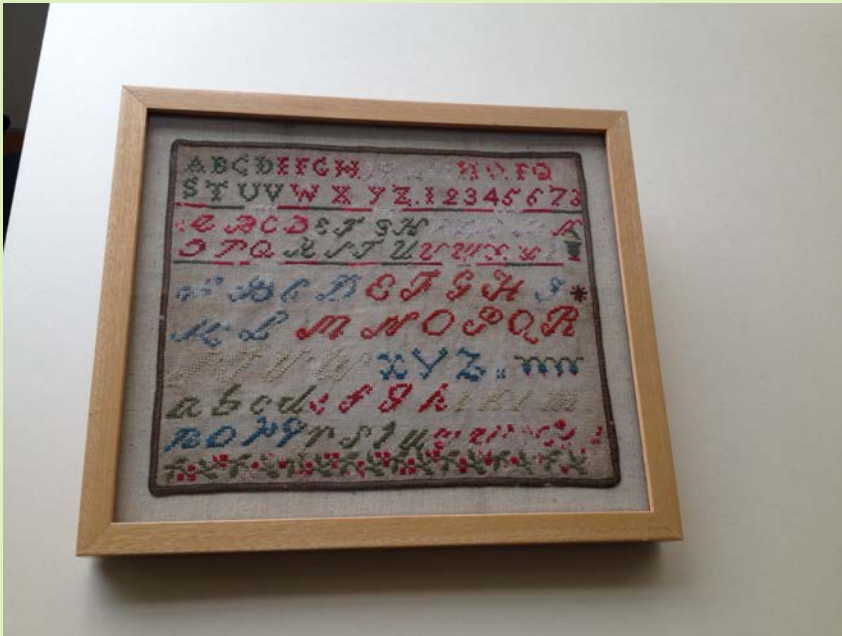 A B C D E F G H N O P Q
S T U V W X Y Z . 1 2 3 4 5 6 7
A B C D E F G H N
O P Q R S T U V W X
A B C D E F G H I
K L M N O P Q R
S T U V W X Y Z
a b c d e f g h i k l m
n o p q r s t u v w x y